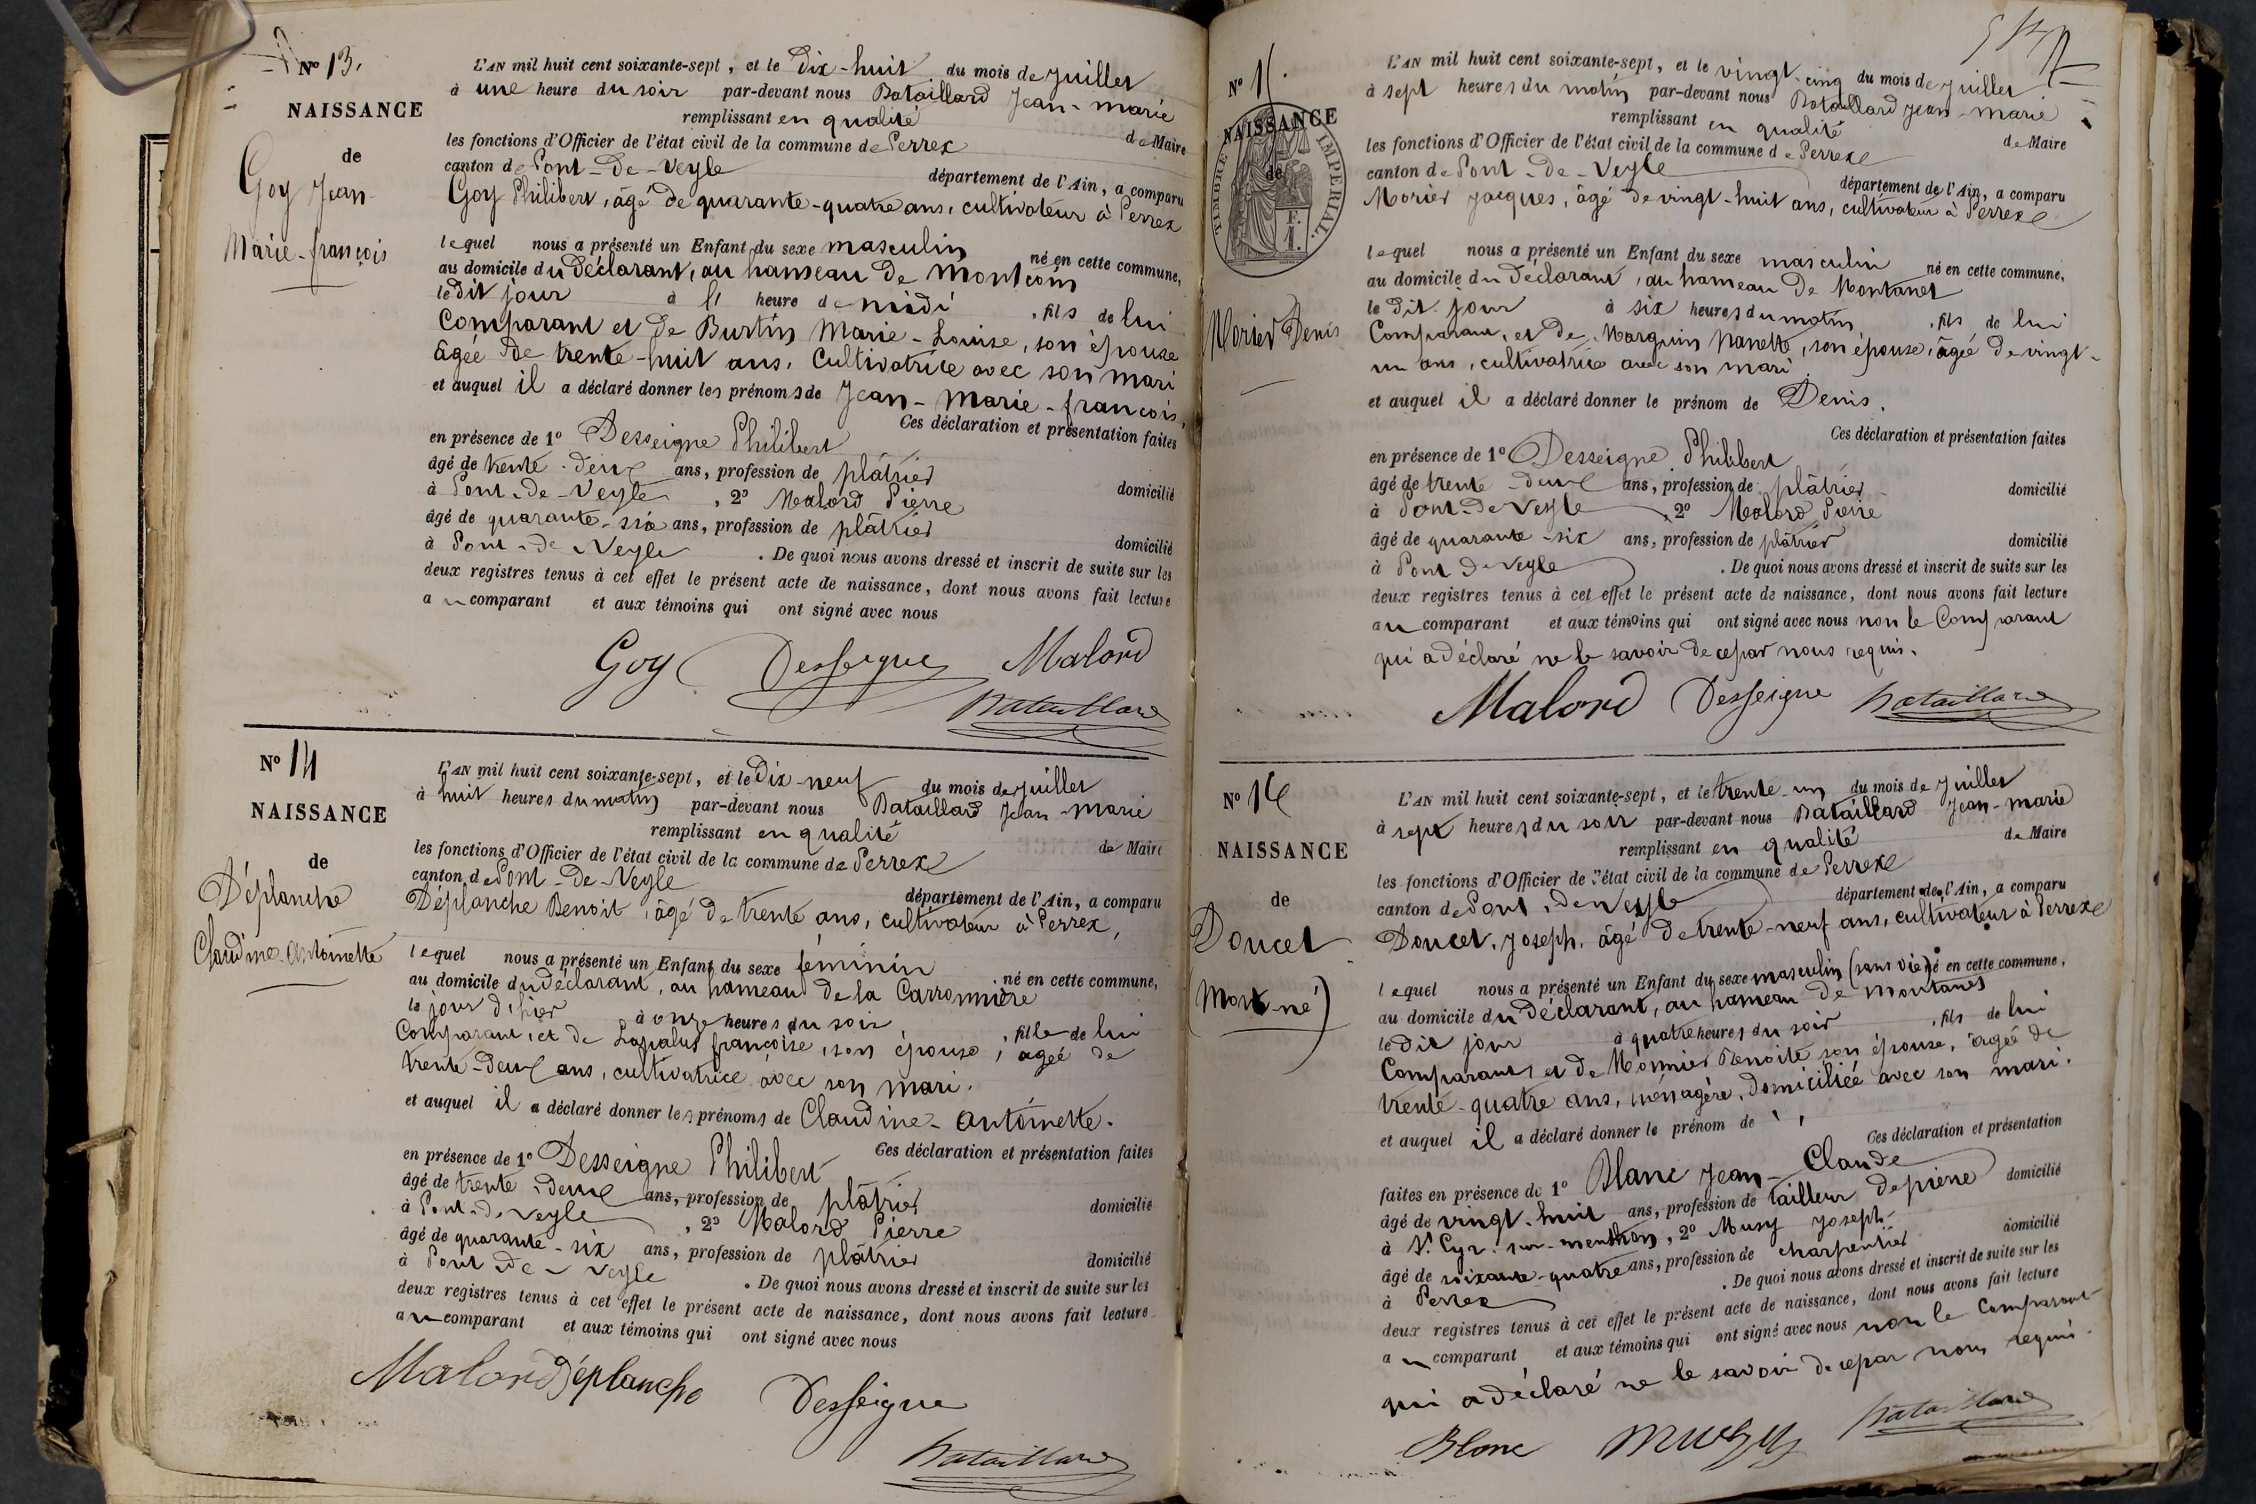 Nº 13.
NAISSANCE
de
Goy Jean-
Marie-françois
L'AN mil huit cent soixante-sept, et le Dix-huit du mois de Juillet
à une heure du soir par-devant nous Bataillard Jean-marie
remplissant en qualité
de Maire
les fonctions d'Officier de l'état civil de la commune de Perrex
canton de Pont-De-Veyle
département de l'Ain, a comparu
Goy Philibert, âgé de quarante-quatre ans, cultivateur à Perrex
lequel nous a présenté un Enfant du sexe masculin
né en cette commune,
au domicile du Déclarant, au hameau de Montcoin
le dit jour à l' heure de midi , fils de lui
Comparant et de Burtin Marie-Louise, son épouse
âgée de trente-huit ans, Cultivatrice avec son mari
et auquel il a déclaré donner les prénoms de Jean-Marie-françois,
Ces déclaration et présentation faites
en présence de 1º Desseigne Philibert
âgé de trente-deux ans, profession de plâtrier
domicilié
à Pont-de-Veyle , 2º Malord Pierre
âgé de quarante-six ans, profession de plâtrier
domicilié
à Pont-de-Veyle . De quoi nous avons dressé et inscrit de suite sur les
deux registres tenus à cet effet le présent acte de naissance, dont nous avons fait lecture
au comparant et aux témoins qui ont signé avec nous
Goy Desseigne Malord
Bataillard
Nº 14
NAISSANCE
de
Déplanche
Claudine-Antoinette
L'AN mil huit cent soixante-sept, et le Dix-neuf du mois de Juillet
à huit heures du matin par-devant nous Bataillard Jean-Marie
remplissant en qualité
de Maire
les fonctions d'Officier de l'état civil de la commune de Perrex
canton de Pont-De-Veyle
département de l'Ain, a comparu
Déplanche Benoit, âgé de trente ans, cultivateur à Perrex,
lequel nous a présenté un Enfant du sexe féminin
, né en cette commune,
au domicile du Déclarant, au hameau de la Carronnière
le jour d'hier à onze heures du soir, , fille de lui
Comparant, et de Lapalus françoise, son épouse, agée de
trente-deux ans, cultivatrice avec son mari.
et auquel il a déclaré donner les prénoms de Claudine-Antoinette.
Ces déclaration et présentation faites
en présence de 1º Desseigne Philibert
âgé de trente-deux ans, profession de plâtrier
domicilié
à Pont-de-Veyle , 2º Malord Pierre
âgé de quarante-six ans, profession de plâtrier
domicilié
à Pont-de-Veyle . De quoi nous avons dressé et inscrit de suite sur les
deux registres tenus à cet effet le présent acte de naissance, dont nous avons fait lecture
au comparant et aux témoins qui ont signé avec nous
Malord Déplanche Desseigne
Bataillard
Nº
NAISSANCE
de
TIMBRE IMPERIAL.
F.
1.
Morier Denis
L'AN mil huit cent soixante-sept, et le vingt-cinq du mois de Juillet
à sept heures du matin par-devant nous Bataillard Jean-marie
remplissant en qualité
de Maire
les fonctions d'Officier de l'état civil de la commune de Perrex
canton de Pont-De-Veyle
département de l'Ain, a comparu
Morier Jacques, âgé de vingt-huit ans, cultivateur à Perrex
lequel nous a présenté un Enfant du sexe masculin né en cette commune,
au domicile du Déclarant, au hameau de Montanet
le dit jour à six heures du matin , fils de lui
Comparant, et de Marguin Nanette, son épouse, âgée de vingt-
un ans, cultivatrice avec son mari.
et auquel il a déclaré donner le prénom de Denis.
Ces déclaration et présentation faites
en présence de 1º Desseigne Philibert
âgé de trente-deux ans, profession de plâtrier
domicilié
à Pont-de Veyle , 2º Malord Pierre
âgé de quarante-six ans, profession de plâtrier
domicilié
à Pont De Veyle . De quoi nous avons dressé et inscrit de suite sur les
deux registres tenus à cet effet le présent acte de naissance, dont nous avons fait lecture
au comparant et aux témoins qui ont signé avec nous non le Comparant
qui a déclaré ne le savoir de ce par nous requis.
Malord Desseigne Bataillard
Nº 16
NAISSANCE
de
Doucet
(Mort-né)
L'AN mil huit cent soixante-sept, et le trente-un du mois de Juillet
à sept heures du soir par-devant nous Bataillard Jean-Marie
remplissant en qualité
de Maire
les fonctions d'Officier de l'état civil de la commune de Perrex
canton de Pont-De Veyle
département de l'Ain, a comparu
Doucet, Joseph, âgé de trente-neuf ans, cultivateur à Perrex
lequel nous a présenté un Enfant du sexe masculin (sans vie) né en cette commune,
au domicile du Déclarant, au hameau de Montanet
le dit jour à quatre heures du soir , fils de lui
Comparant et de Monnier Benoite son épouse, âgée de
trente-quatre ans, ménagère, domiciliée avec son mari.
et auquel il a déclaré donner le prénom de
Ces déclaration et présentation
faites en présence de 1º Blanc Jean-Claude
âgé de vingt-huit ans, profession de tailleur de pierre domicilié
à St Cyr-sur-menthon, 2º Musy Joseph
âgé de soixante-quatre ans, profession de charpentier
domicilié
à Perrex . De quoi nous avons dressé et inscrit de suite sur les
deux registres tenus à cet effet le présent acte de naissance, dont nous avons fait lecture
au comparant et aux témoins qui ont signé avec nous non le Comparant
qui a déclaré ne le savoir de ce par nous requis.
Blanc Musy Bataillard